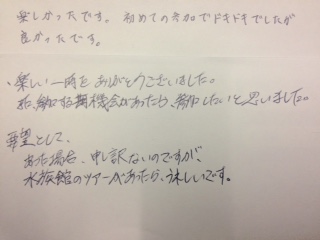 楽しかったです。初めての参加でドキドキでしたが
良かったです。
・楽しい一時をありがとうございました。
又、参加する機会があったら、参加したいと思いました。
要望として、
あった場合、申し訳ないのですが、
水族館のツアーがあったら、うれしいです。